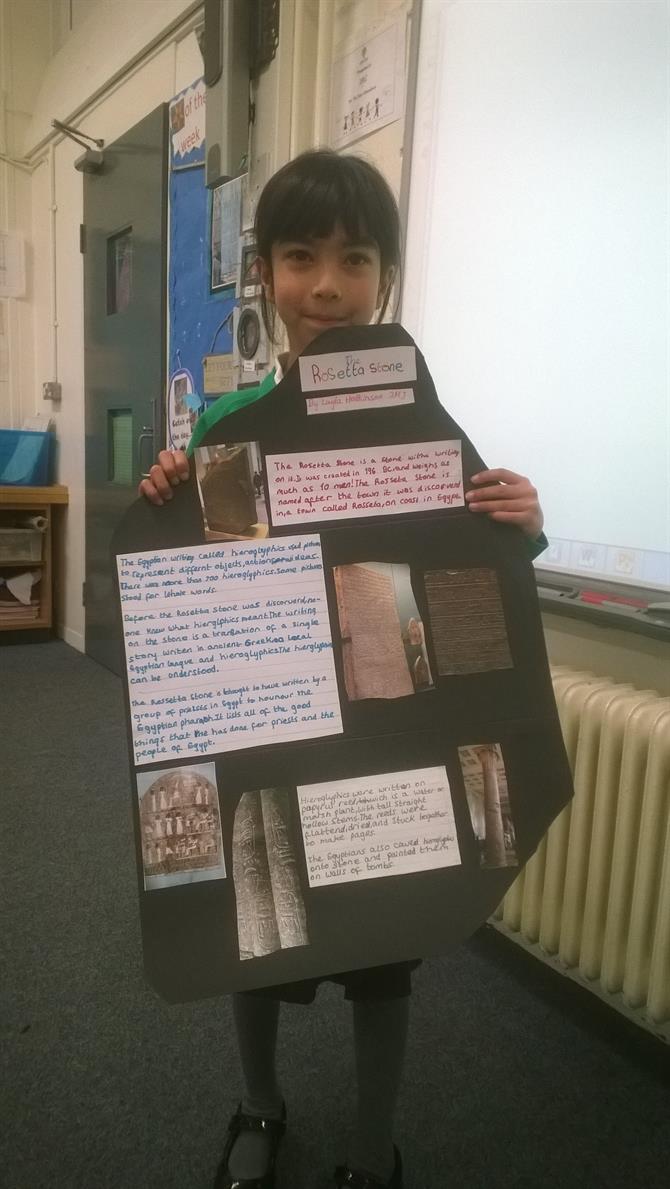 of the
week
The
Rosetta Stone
By Layla
The Rosetta Stone is a stone with a writing
on it. It was created in 196 BC. and weighs as
much as 10 men! The Rosetta Stone is
named after the town it was discoverd
in, a town called Rosseta, on coast in Egypt.
The Egyptian writing called hieroglyphics used pictures
to represent differnt objects, actions or ideas.
There was more than 700 hieroglyphics. Some pictures
stood for whole words.
Before the Rosetta Stone was discorverd, no-
one knew what hierglphics meant. The writing
on the stone is a translation of a single
story writen in ancient Greek, a local
Egyptian langue and hieroglyphics. The hierglyphics
can be understood.
The Rossetta Stone is thought to have written by a
group of priests in Egypt to hounour the
Egyptian pharaoh. It lists all of the good
things that he has done for priests and the
people of Egypt.
Hieroglyphics were written on
papyrus reed, which is a water or
marsh plant, with tall straight
hollow stems. The reeds were
flattend, dried, and stuck together
to make pages.
The Egyptians also cawed hieroglyphics
onto stone and painted them
on walls of tombs.